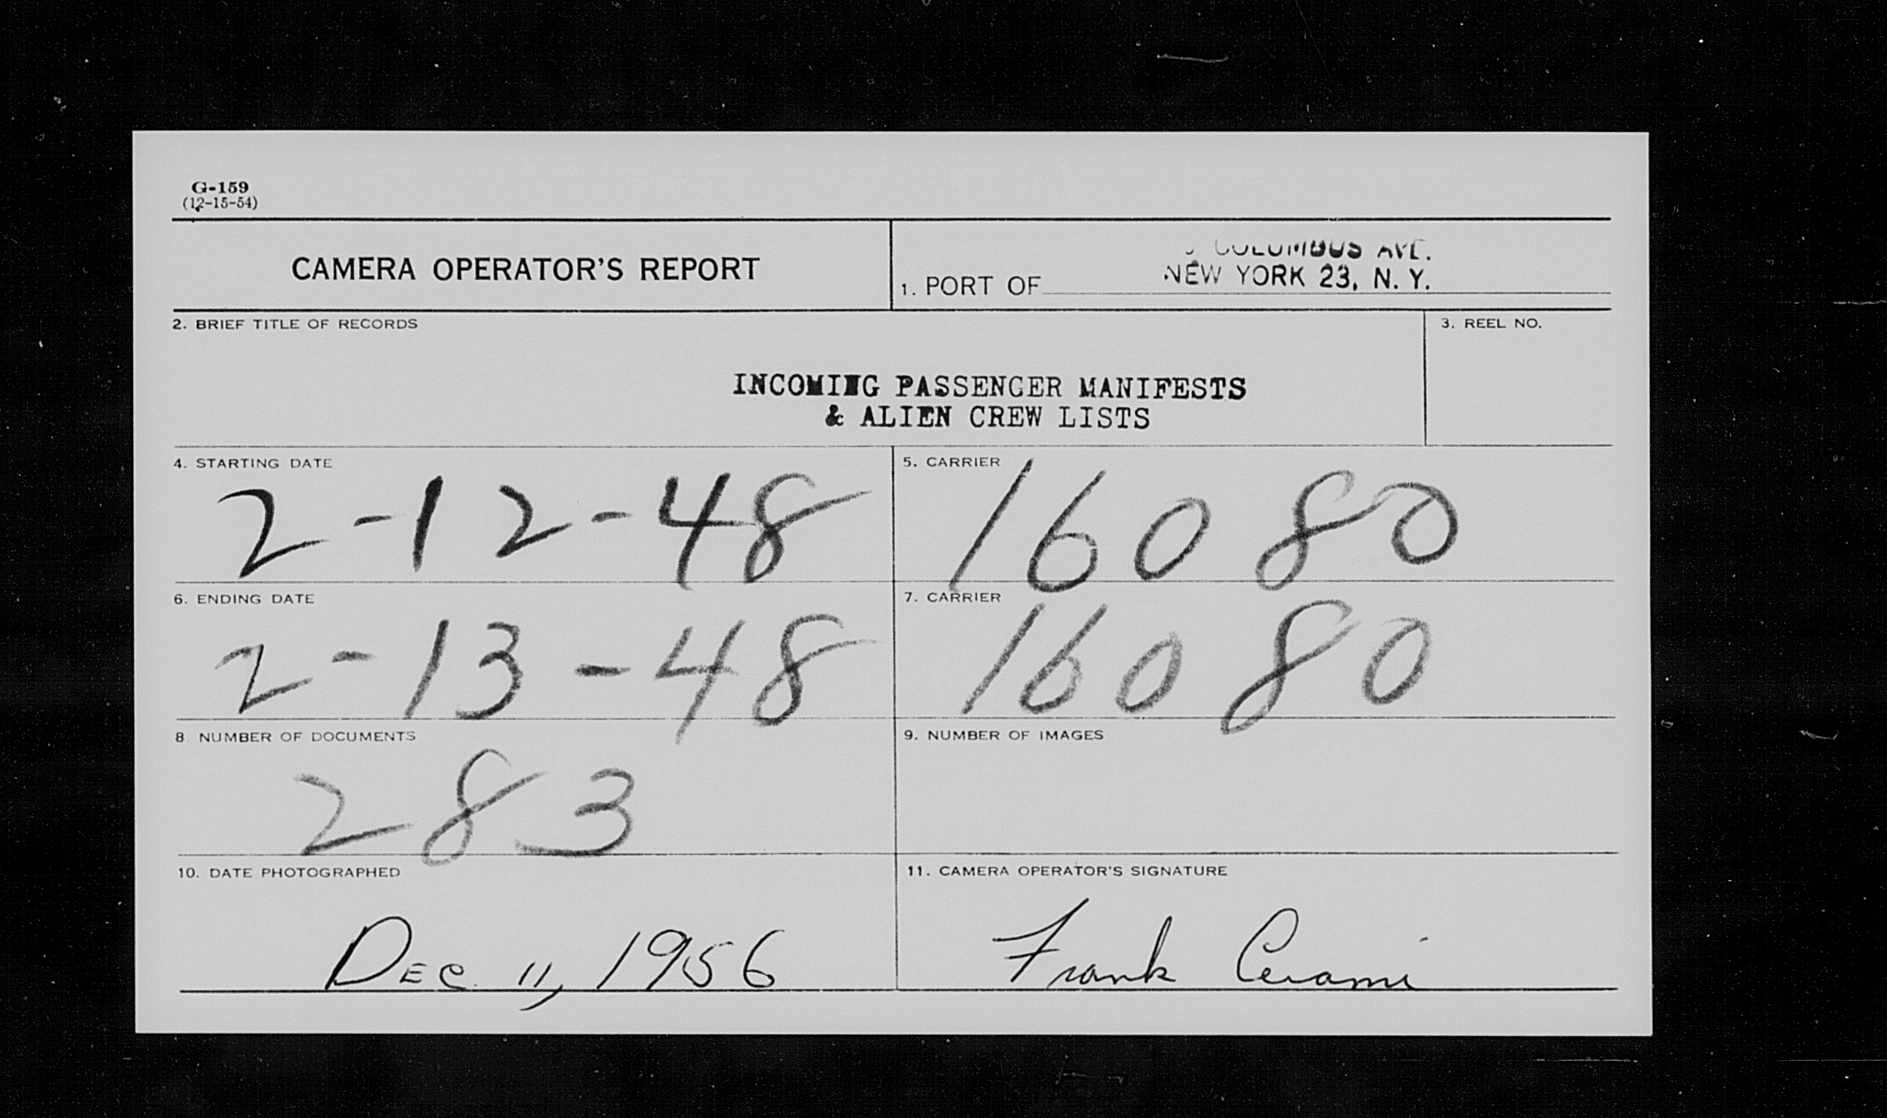 G-159
(12-15-54)
CAMERA OPERATOR'S REPORT
COLUMBUS AVE.
1. PORT OF NEW YORK 23, N. Y.
2. BRIEF TITLE OF RECORDS
3. REEL NO.
INCOMING PASSENGER MANIFESTS
& ALIEN CREW LISTS
4. STARTING DATE
2-12-48
5. CARRIER
16080
6. ENDING DATE
2-13-48
7. CARRIER
16080
8 NUMBER OF DOCUMENTS
283
9. NUMBER OF IMAGES
10. DATE PHOTOGRAPHED
DEC 11, 1956
11. CAMERA OPERATOR'S SIGNATURE
Frank Cerami